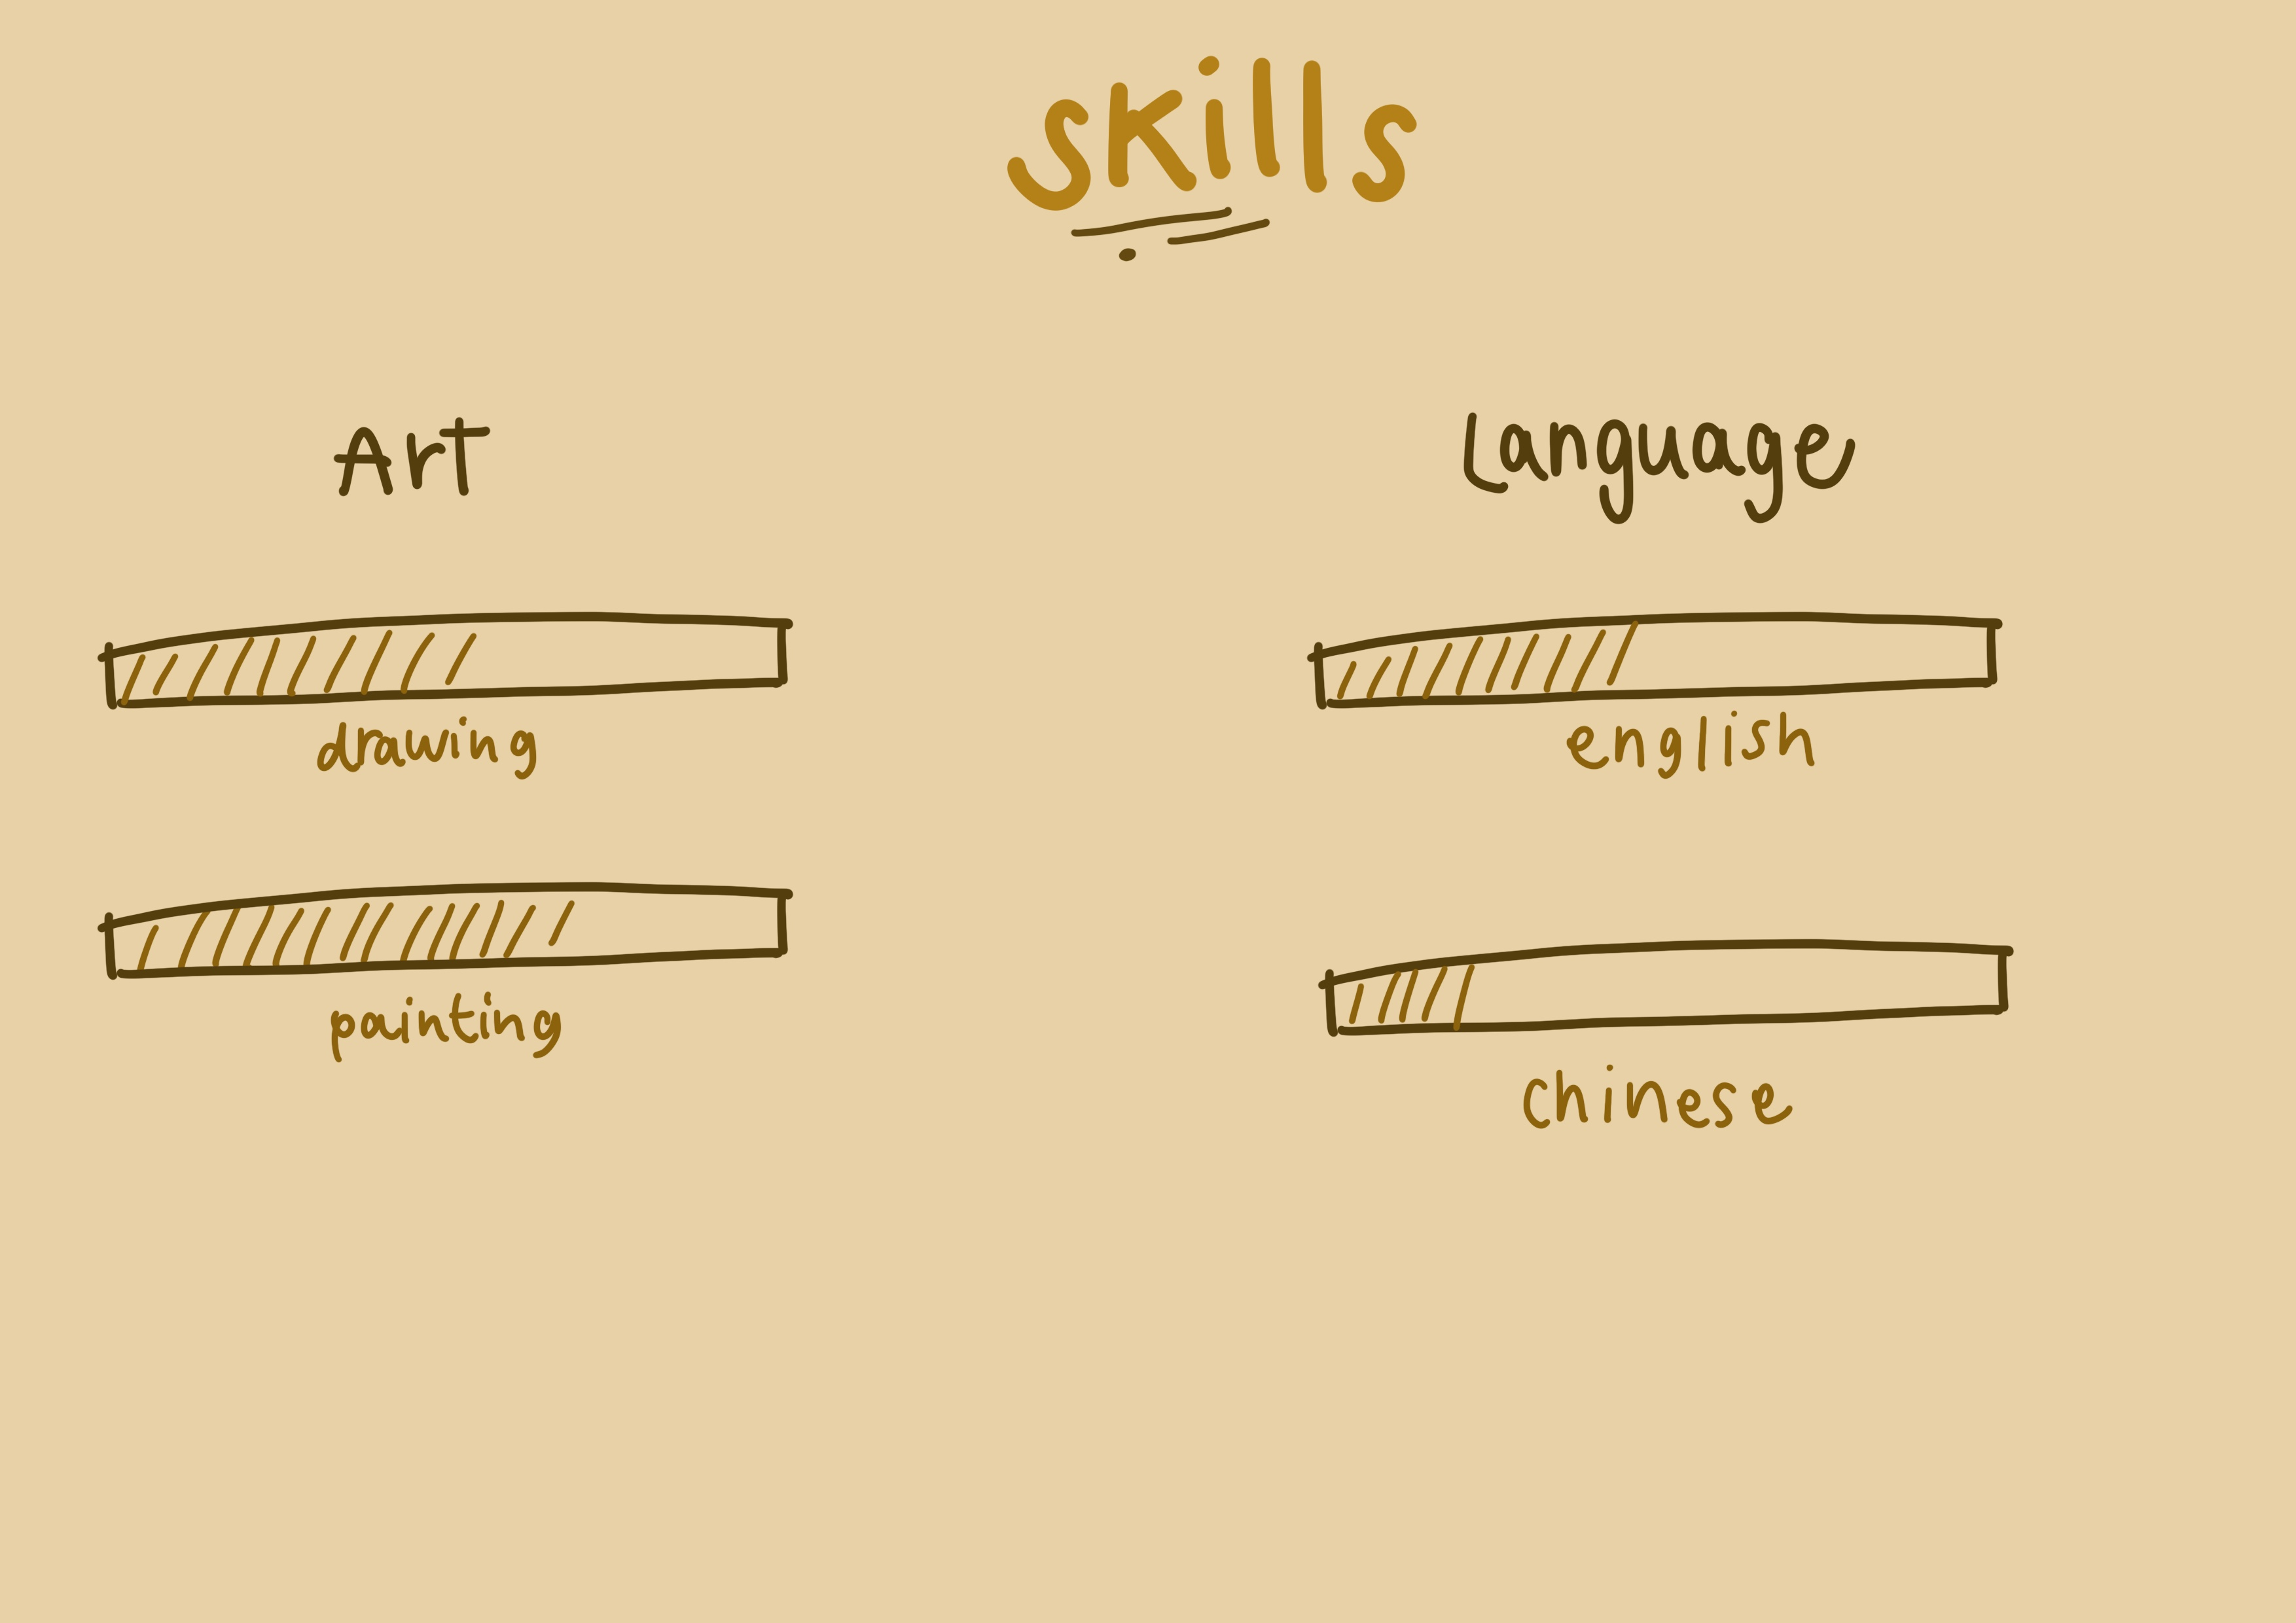 skills
Art
drawing
painting
Language
english
chinese